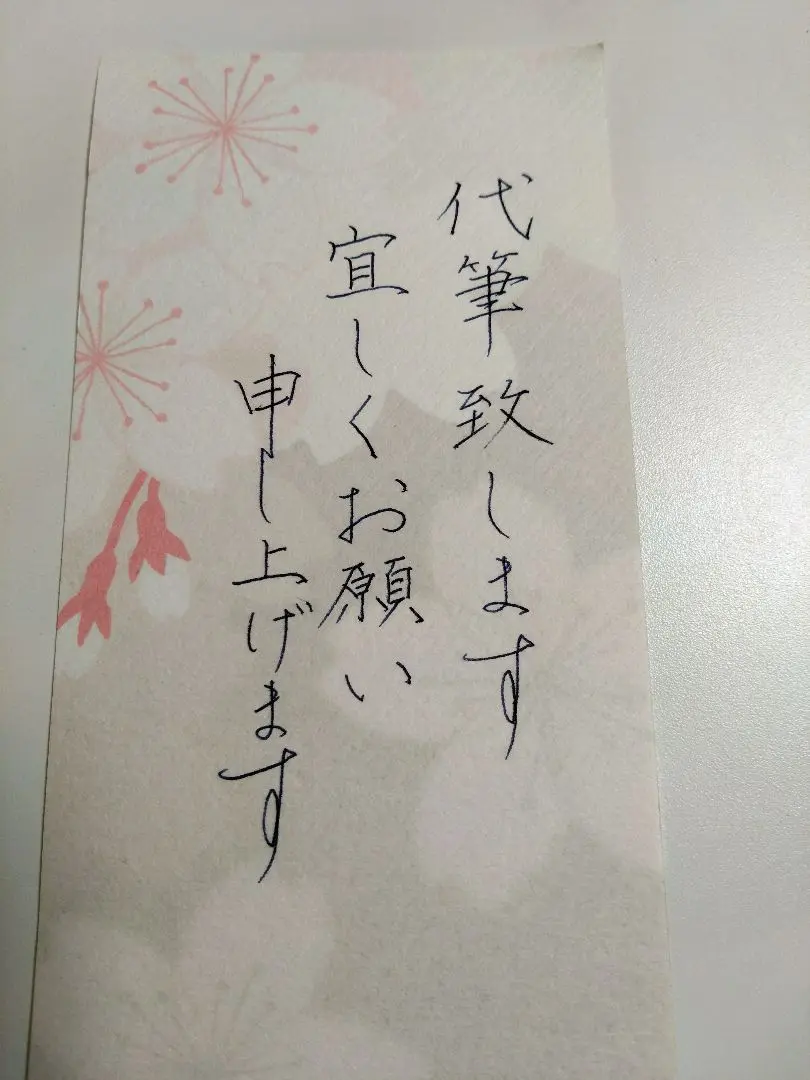 代筆致します
宜しくお願い
申し上げます